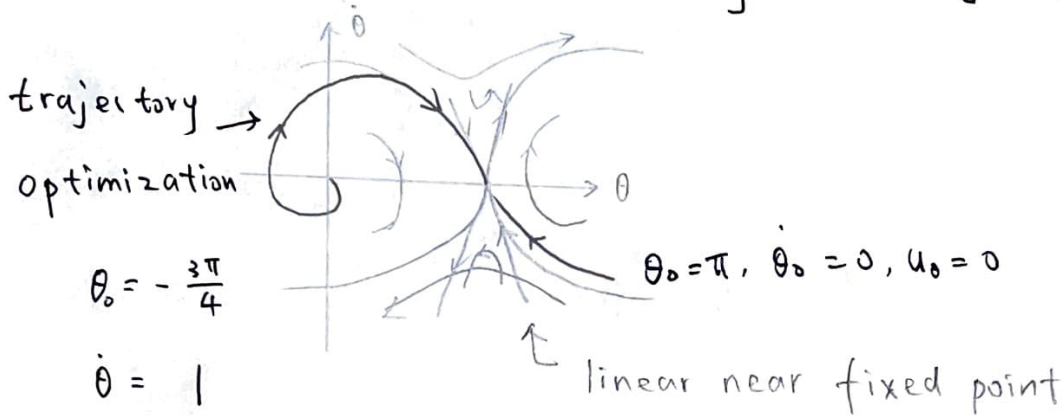 θ̇
trajectory →
optimization
θ
θ₀ = - 3π/4
θ₀ = π, θ̇₀ = 0, u₀ = 0
θ̇ = 1
linear near fixed point